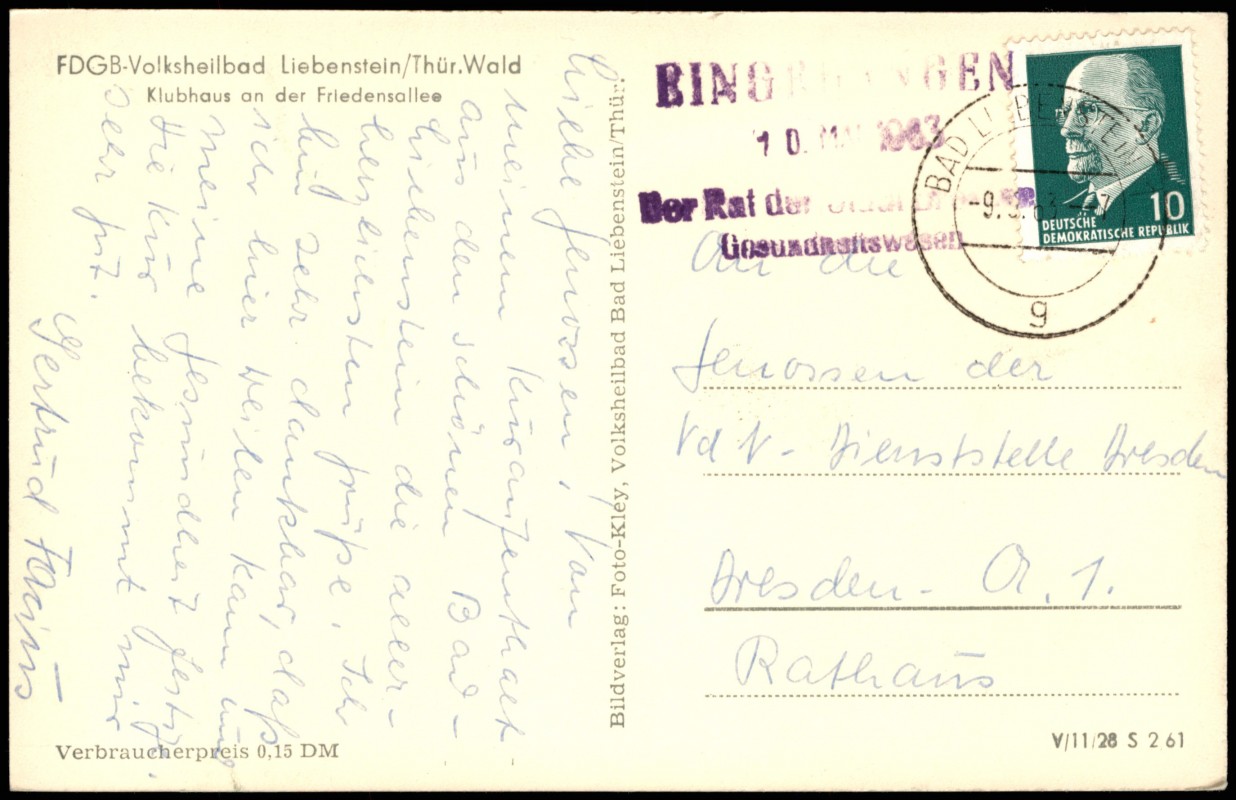 FDGB-Volksheilbad Liebenstein/Thür.Wald
Klubhaus an der Friedensallee
Liebe Genossen, Vom
meinem Kuraufenthalt
aus den schönen Bad-
Liebenstein die aller-
herzlichsten Grüße. Ich
bin sehr dankbar, daß
ich hier weilen kann und
meine Gesundheit festig.
Die Kur bekommt mir
sehr gut.
Gertrud
Verbraucherpreis 0,15 DM
Bildverlag: Foto-Kley, Volksheilbad Bad Liebenstein/Thür.
EINGEGANGEN
10. 1963
Der Rat der Stadt Dresden
Gesundheitswesen
BAD LIEBENSTEIN
g
DEUTSCHE
DEMOKRATISCHE REPUBLIK
10
An die
Genossen der
VdN-Dienststelle Dresden
Dresden- A. 1.
Rathaus
V/11/28 S 2 61